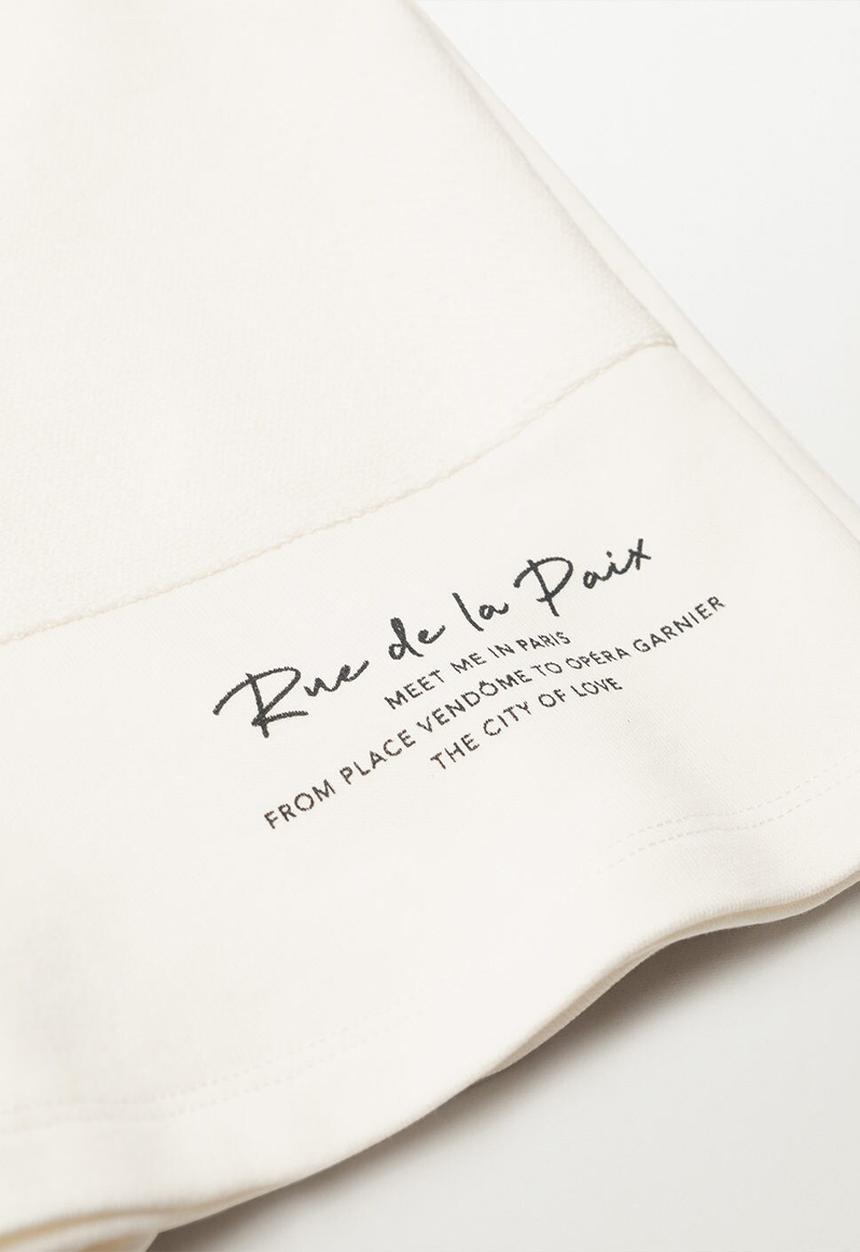 Rue de la Paix
MEET ME IN PARIS
FROM PLACE VENDÔME TO OPÉRA GARNIER
THE CITY OF LOVE